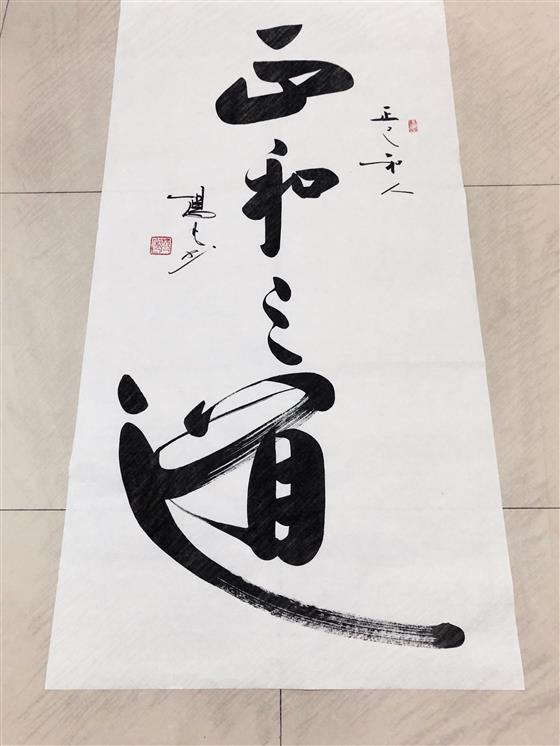 正和之道
正己和人